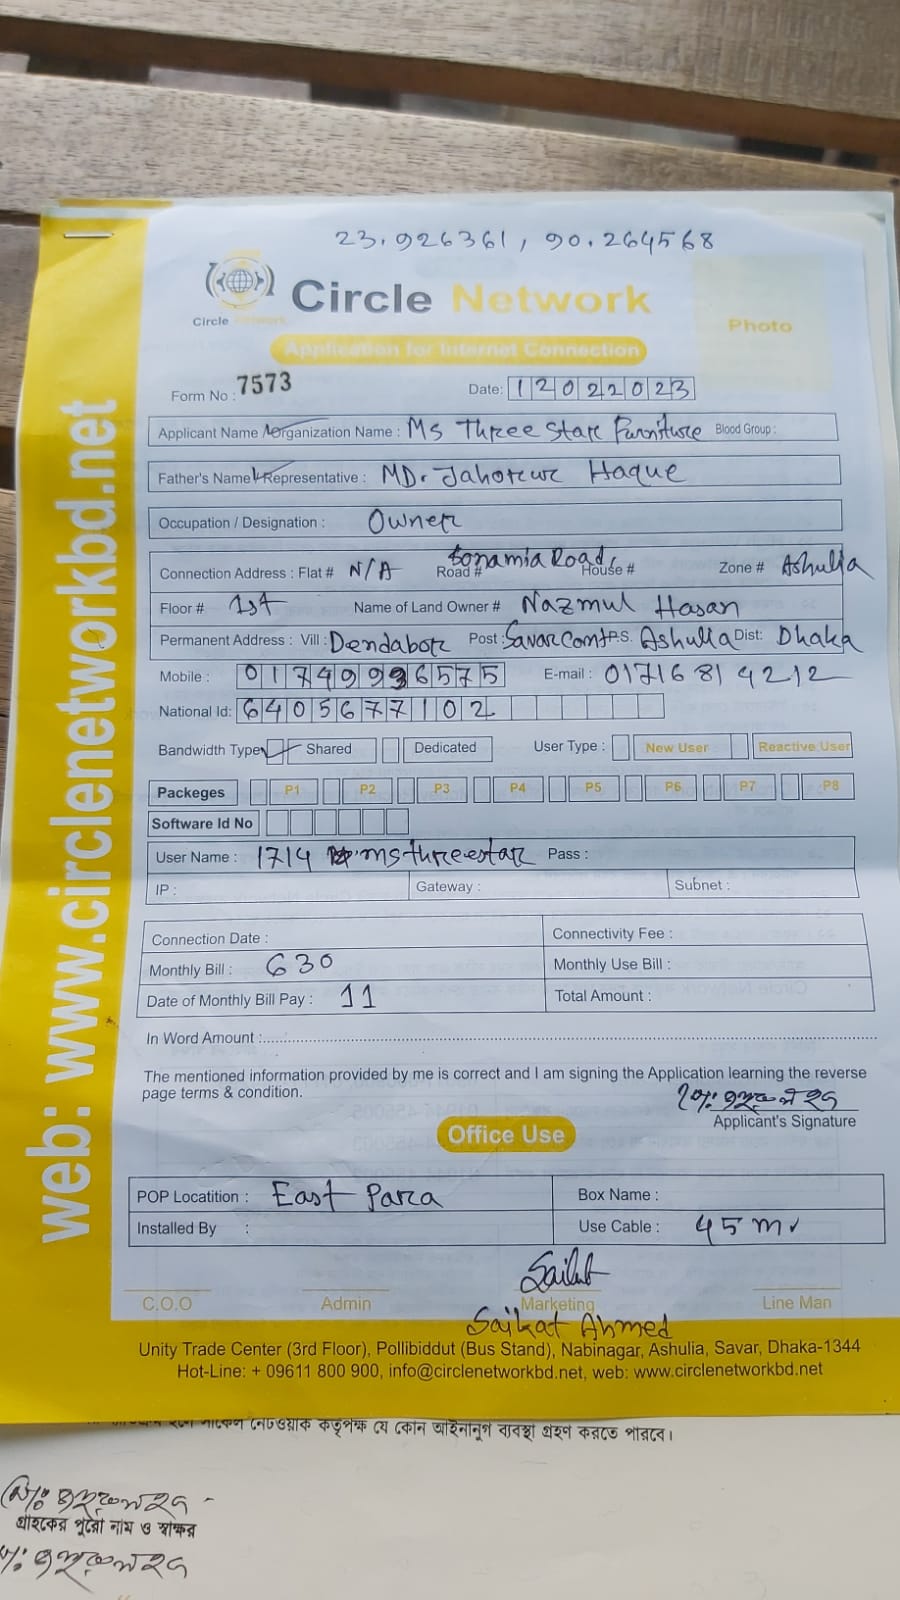 23.926361, 90.264568
Circle Network
Circle Network
Photo
Application for Internet Connection
Form No : 7573 Date: 12022023
Applicant Name / Organization Name : Ms Three Star Furniture Blood Group :
Father's Name / Representative : MD. Jahorur Haque
Occupation / Designation : Owner
Connection Address : Flat # N/A Road # Sonamia Road, House # Zone # Ashulia
Floor # 1st Name of Land Owner # Nazmul Hasan
Permanent Address : Vill : Dendabor Post : Savar Cemt P.S. Ashulia Dist: Dhaka
Mobile : 01749996575 E-mail : 01716814212
National Id: 6405677102
Bandwidth Type Shared Dedicated User Type : New User Reactive User
Packeges P1 P2 P3 P4 P5 P6 P7 P8
Software Id No
User Name : 1714 msthreestar Pass :
IP : Gateway : Subnet :
Connection Date : Connectivity Fee :
Monthly Bill : 630 Monthly Use Bill :
Date of Monthly Bill Pay : 11 Total Amount :
In Word Amount :
The mentioned information provided by me is correct and I am signing the Application learning the reverse
page terms & condition.
Applicant's Signature
Office Use
POP Locatition : East Para Box Name :
Installed By : Use Cable : 45 m
Saikat
C.O.O Admin Marketing Line Man
Saikat Ahmed
Unity Trade Center (3rd Floor), Pollibiddut (Bus Stand), Nabinagar, Ashulia, Savar, Dhaka-1344
Hot-Line: + 09611 800 900, info@circlenetworkbd.net, web: www.circlenetworkbd.net
web: www.circlenetworkbd.net
নেটওয়ার্ক কর্তৃপক্ষ যে কোন আইনানুগ ব্যবস্থা গ্রহণ করতে পারবে।
গ্রাহকের পুরো নাম ও স্বাক্ষর